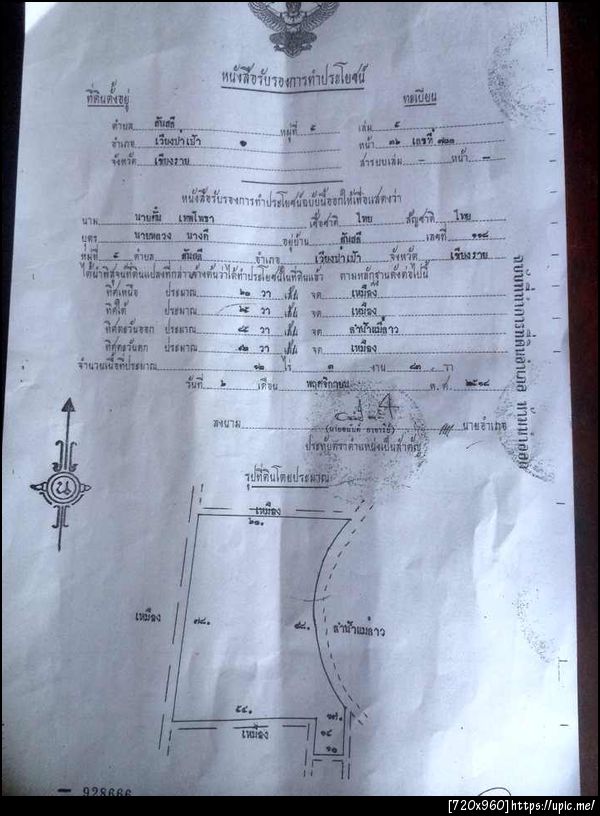 หนังสือรับรองการทำประโยชน์
ที่ดินตั้งอยู่ ทะเบียน
ตำบล สันสลี หมู่ที่ ๕ เล่ม ๕
อำเภอ เวียงป่าเป้า หน้า ๓๖ เลขที่
จังหวัด เชียงราย สารบบเล่ม – หน้า –
หนังสือรับรองการทำประโยชน์ฉบับนี้ออกให้เพื่อแสดงว่า
นาม เชื้อชาติ ไทย สัญชาติ ไทย
บุตร นายหลวง นางดี อยู่บ้าน สันสลี เลขที่ ๑๑๘
หมู่ที่ ๕ ตำบล สันสลี อำเภอ เวียงป่าเป้า จังหวัด เชียงราย
ได้นำพิสูจน์ที่ดินแปลงที่กล่าวข้างต้นว่าได้ทำประโยชน์ในที่ดินแล้ว ตามหลักฐานดังต่อไปนี้
ทิศเหนือ ประมาณ วา เส้น จด เหมือง
ทิศใต้ ประมาณ วา เส้น จด เหมือง
ทิศตะวันออก ประมาณ วา เส้น จด ลำน้ำแม่ลาว
ทิศตะวันตก ประมาณ วา เส้น จด เหมือง
จำนวนเนื้อที่ประมาณ ๑๒ ไร่ ๓ งาน ๘๓ วา
วันที่ ๖ เดือน พฤศจิกายน ค.ศ. ๒๕๑๔
ลงนาม นายอำเภอ
ประทับตราตำแหน่งเป็นสำคัญ
รูปที่ดินโดยประมาณ
น
เหมือง
เหมือง
๗๘.
ลำน้ำแม่ลาว
๕๔.
๑๗.
เหมือง
๑๘
๑๐
– 928666
[720x960] https://upic.me/